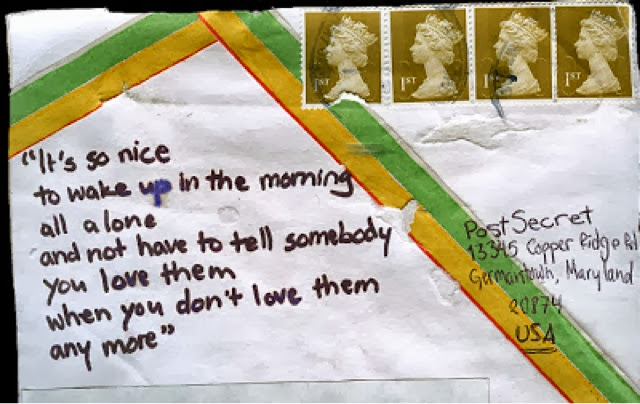 1ST 1ST 1ST 1ST
"It's so nice
to wake up in the morning
all alone
and not have to tell somebody
you love them
when you don't love them
any more"
PostSecret
13345 Copper Ridge Rd
Germantown, Maryland
20874
USA